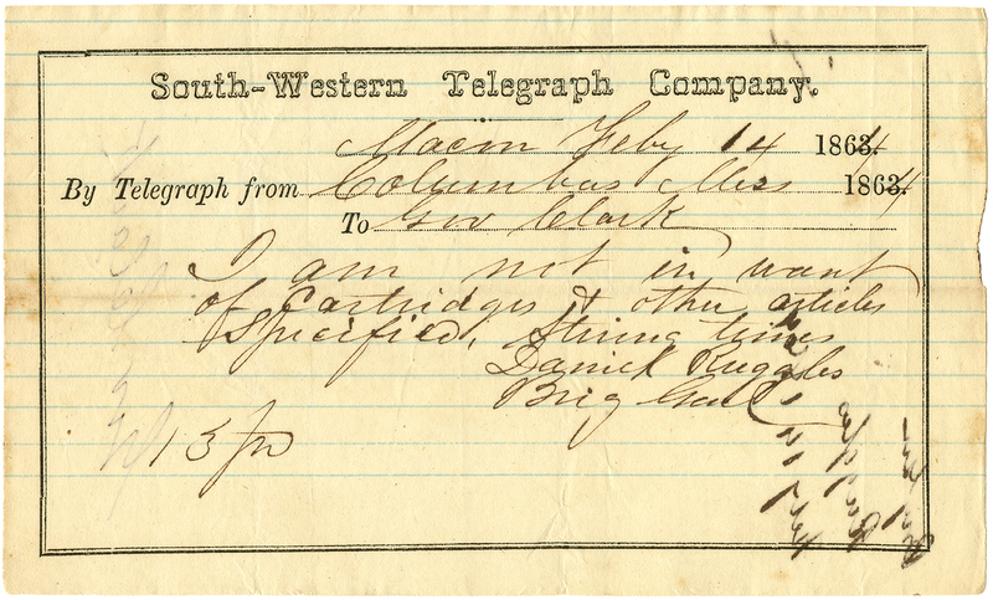 South-Western Telegraph Company.
Macon Feby 14 1864
By Telegraph from Columbus Miss 1864
To Gov Clark
I am not in want
of Cartridges & other articles
specified, Stiring times
Daniel Ruggles
Brig Genl
13